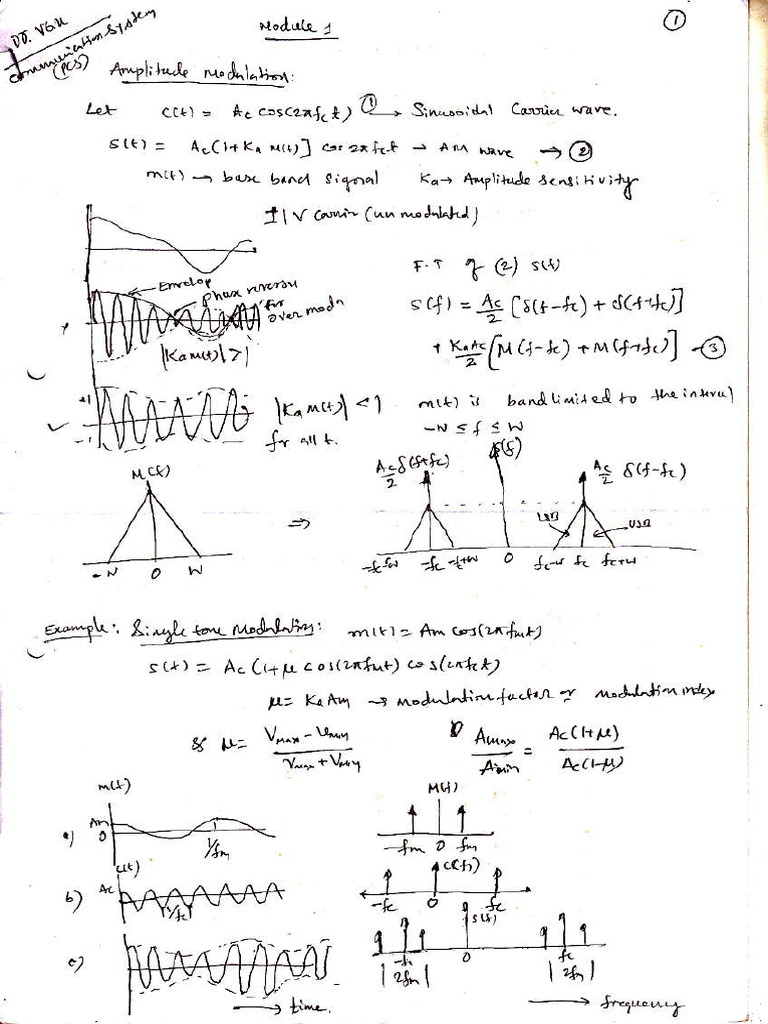 Module 1
①
communication system
(PCS)
Amplitude Modulation:
Let c(t) = Ac cos(2πfct) ① → Sinusoidal Carrier wave.
s(t) = Ac[1+Ka m(t)] cos 2πfct → AM wave → ②
m(t) → base band signal Ka → Amplitude sensitivity
±1V carrier (unmodulated)
Envelop
phase reversal
for
over modn
|Ka m(t)| > 1
F.T of (2) s(t)
S(f) = Ac/2 [δ(f-fc) + δ(f+fc)]
+ KaAc/2 [M(f-fc) + M(f+fc)] - ③
+1
-1
|Ka m(t)| < 1
for all t.
m(t) is bandlimited to the interval
-W ≤ f ≤ W
M(f)
-W 0 W
⇒
Ac/2 δ(f+fc)
S(f)
Ac/2 δ(f-fc)
LSB
USB
-fc-W -fc -fc+W 0 fc-W fc fc+W
Example: Single tone Modulation: m(t) = Am cos(2πfmt)
s(t) = Ac (1+μ cos(2πfmt) cos(2πfct)
μ = KaAm → modulation factor or modulation index
& μ = Vmax - Vmin / Vmax + Vmin
Amax / Amin = Ac(1+μ) / Ac(1-μ)
m(t)
a) Am
0
1/fm
M(f)
-fm 0 fm
c(t)
b) Ac
1/fc
C(f)
-fc 0 fc
c)
S(f)
-fc 0 fc
|2fm| |2fm|
→ time.
→ frequency